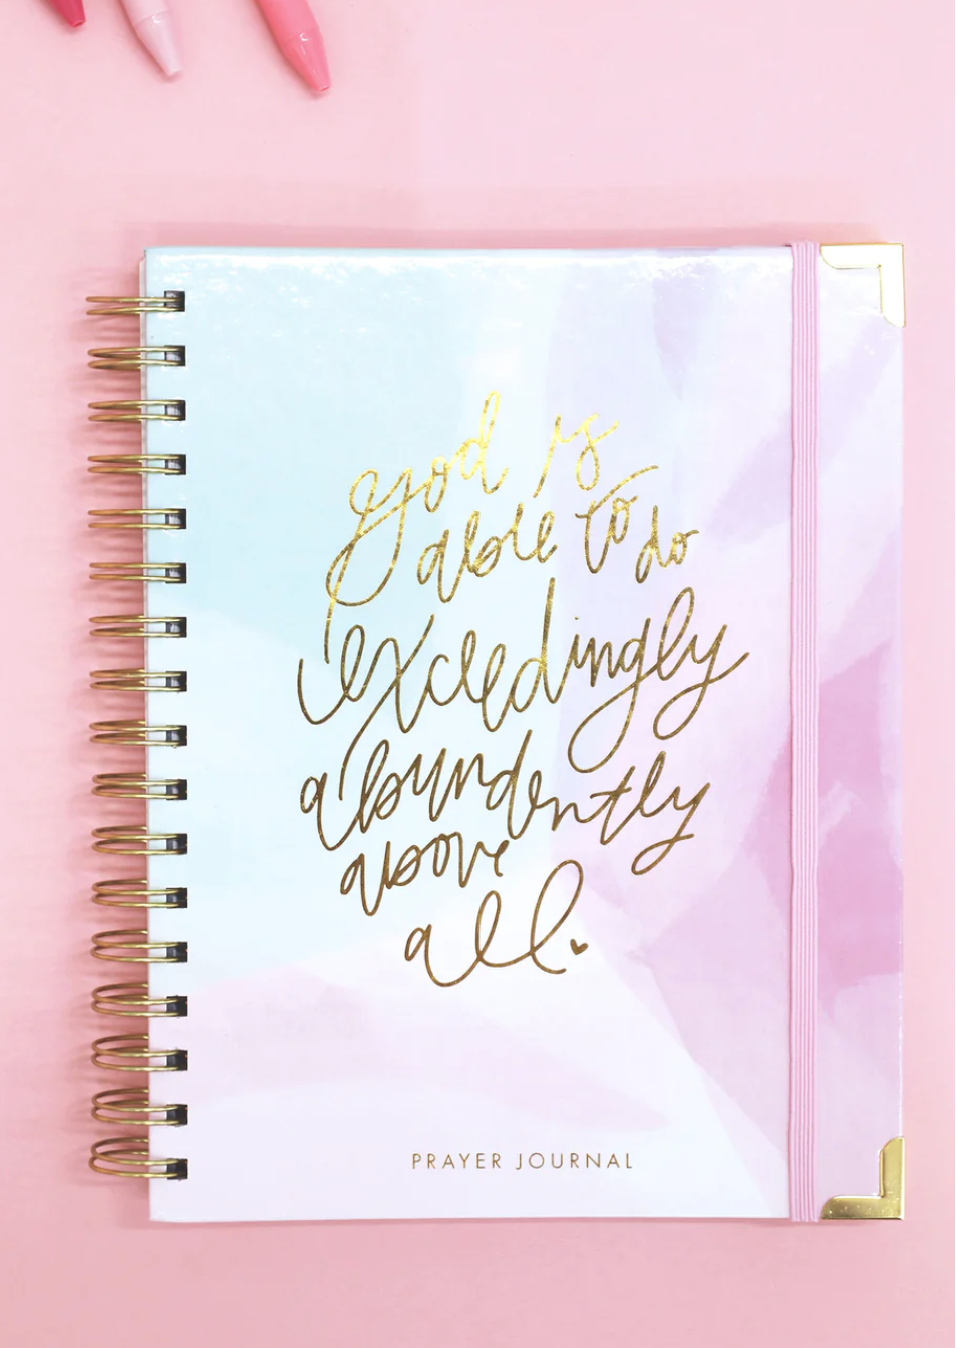 God is
able to do
exceedingly
abundently
above
all.
PRAYER JOURNAL